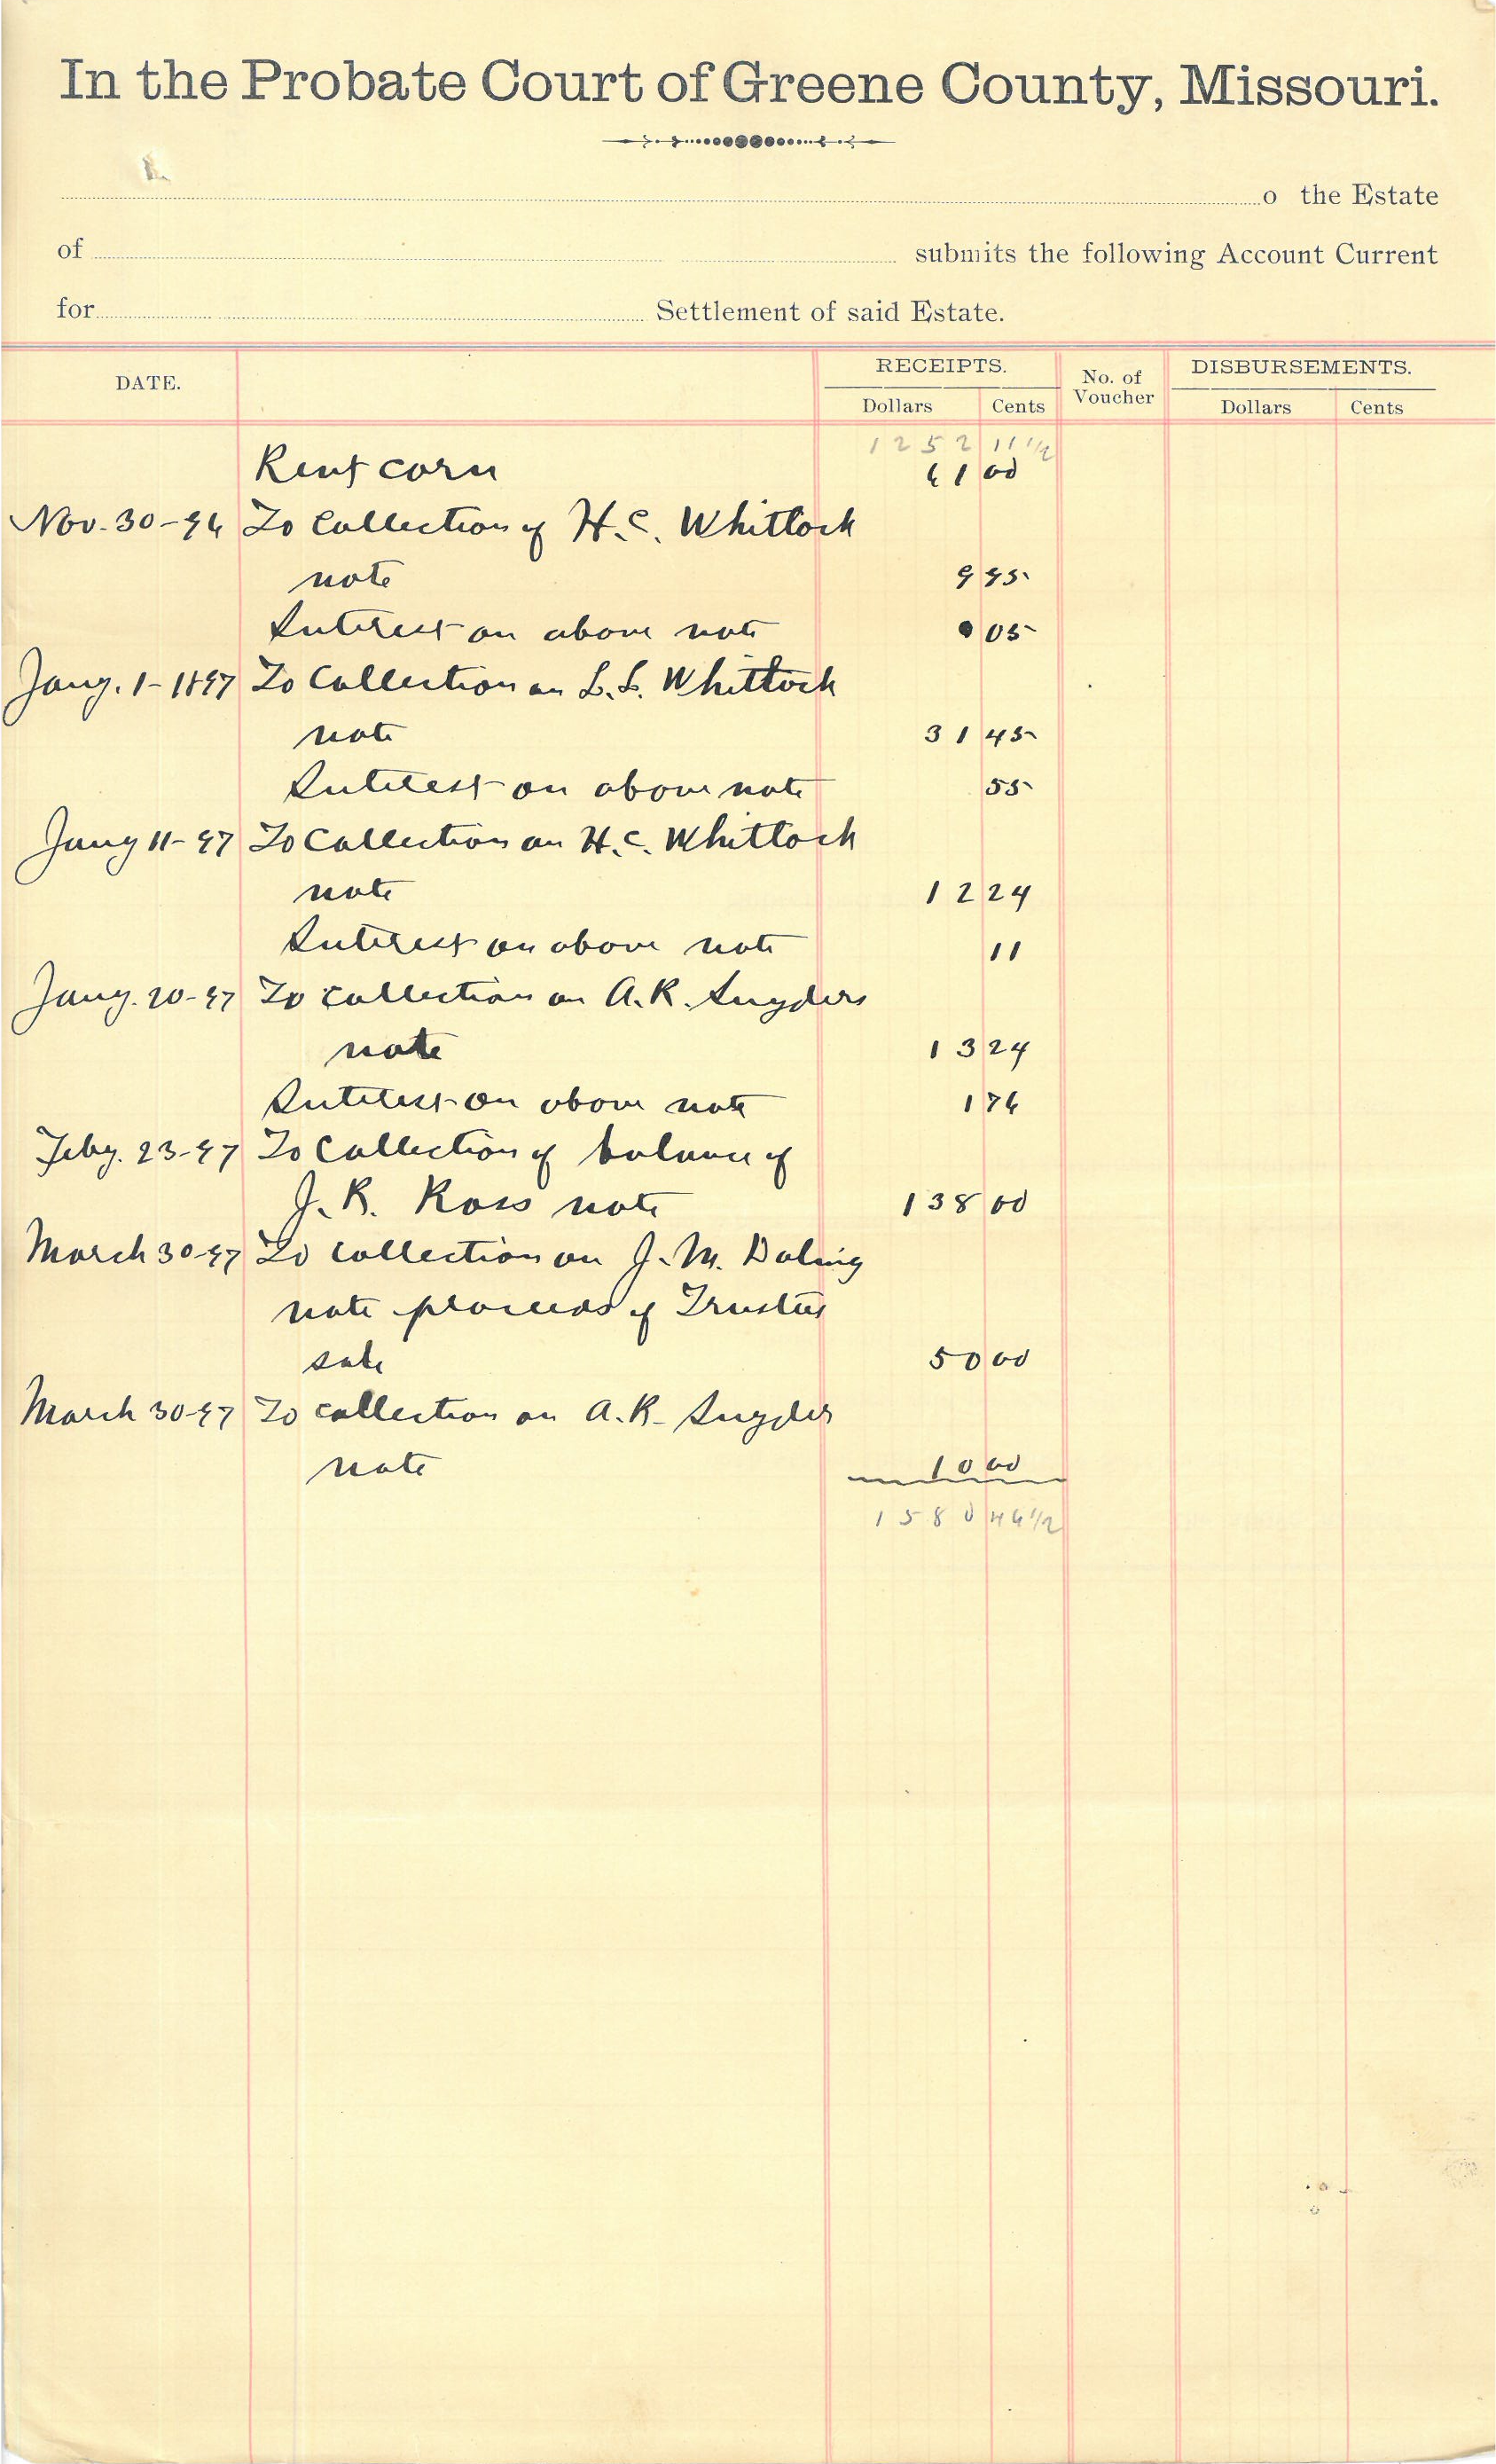 In the Probate Court of Greene County, Missouri.
o the Estate
of submits the following Account Current
for Settlement of said Estate.
DATE. RECEIPTS. No. of Voucher DISBURSEMENTS.
Dollars Cents Dollars Cents
1252 11 1/2
Rent corn 61 00
Nov. 30-96 To Collection of H.C. Whitlock
note 9 95
Interest on above note 05
Jany. 1-1897 To Collection on L.L. Whitlock
note 31 45
Interest on above note 55
Jany 11-97 To Collection on H.C. Whitlock
note 12 24
Interest on above note 11
Jany. 20-97 To collection on A.R. Snyders
note 13 24
Interest on above note 1 76
Feby. 23-97 To Collection of balance of
J.R. Ross note 138 00
March 30-97 To collection on J.M. Doling
note proceeds of Trustees
sale 50 00
March 30-97 To collection on A.R. Snyder
note 10 00
1580 46 1/2